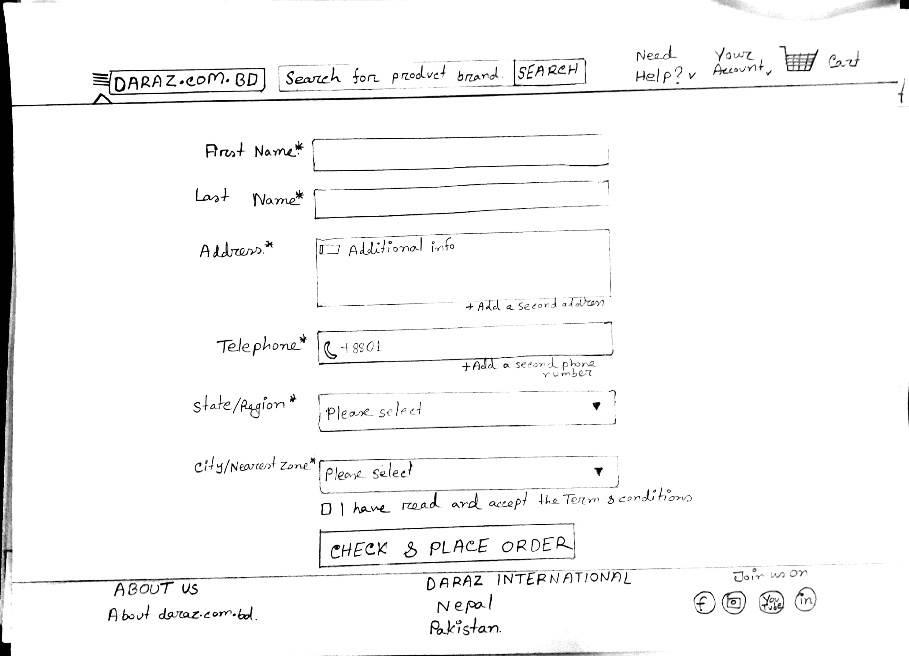 DARAZ.COM.BD
Search for product brand.
SEARCH
Need Help?
Your Account
Cart
First Name*
Last Name*
Address*
Additional info
+ Add a second address
Telephone*
+8801
+Add a second phone
number
State/Region*
Please select
City/Nearest Zone*
Please select
I have read and accept the Term & conditions
CHECK & PLACE ORDER
ABOUT US
About daraz.com.bd.
DARAZ INTERNATIONAL
Nepal
Pakistan.
Join us on
f
You
Tube
in